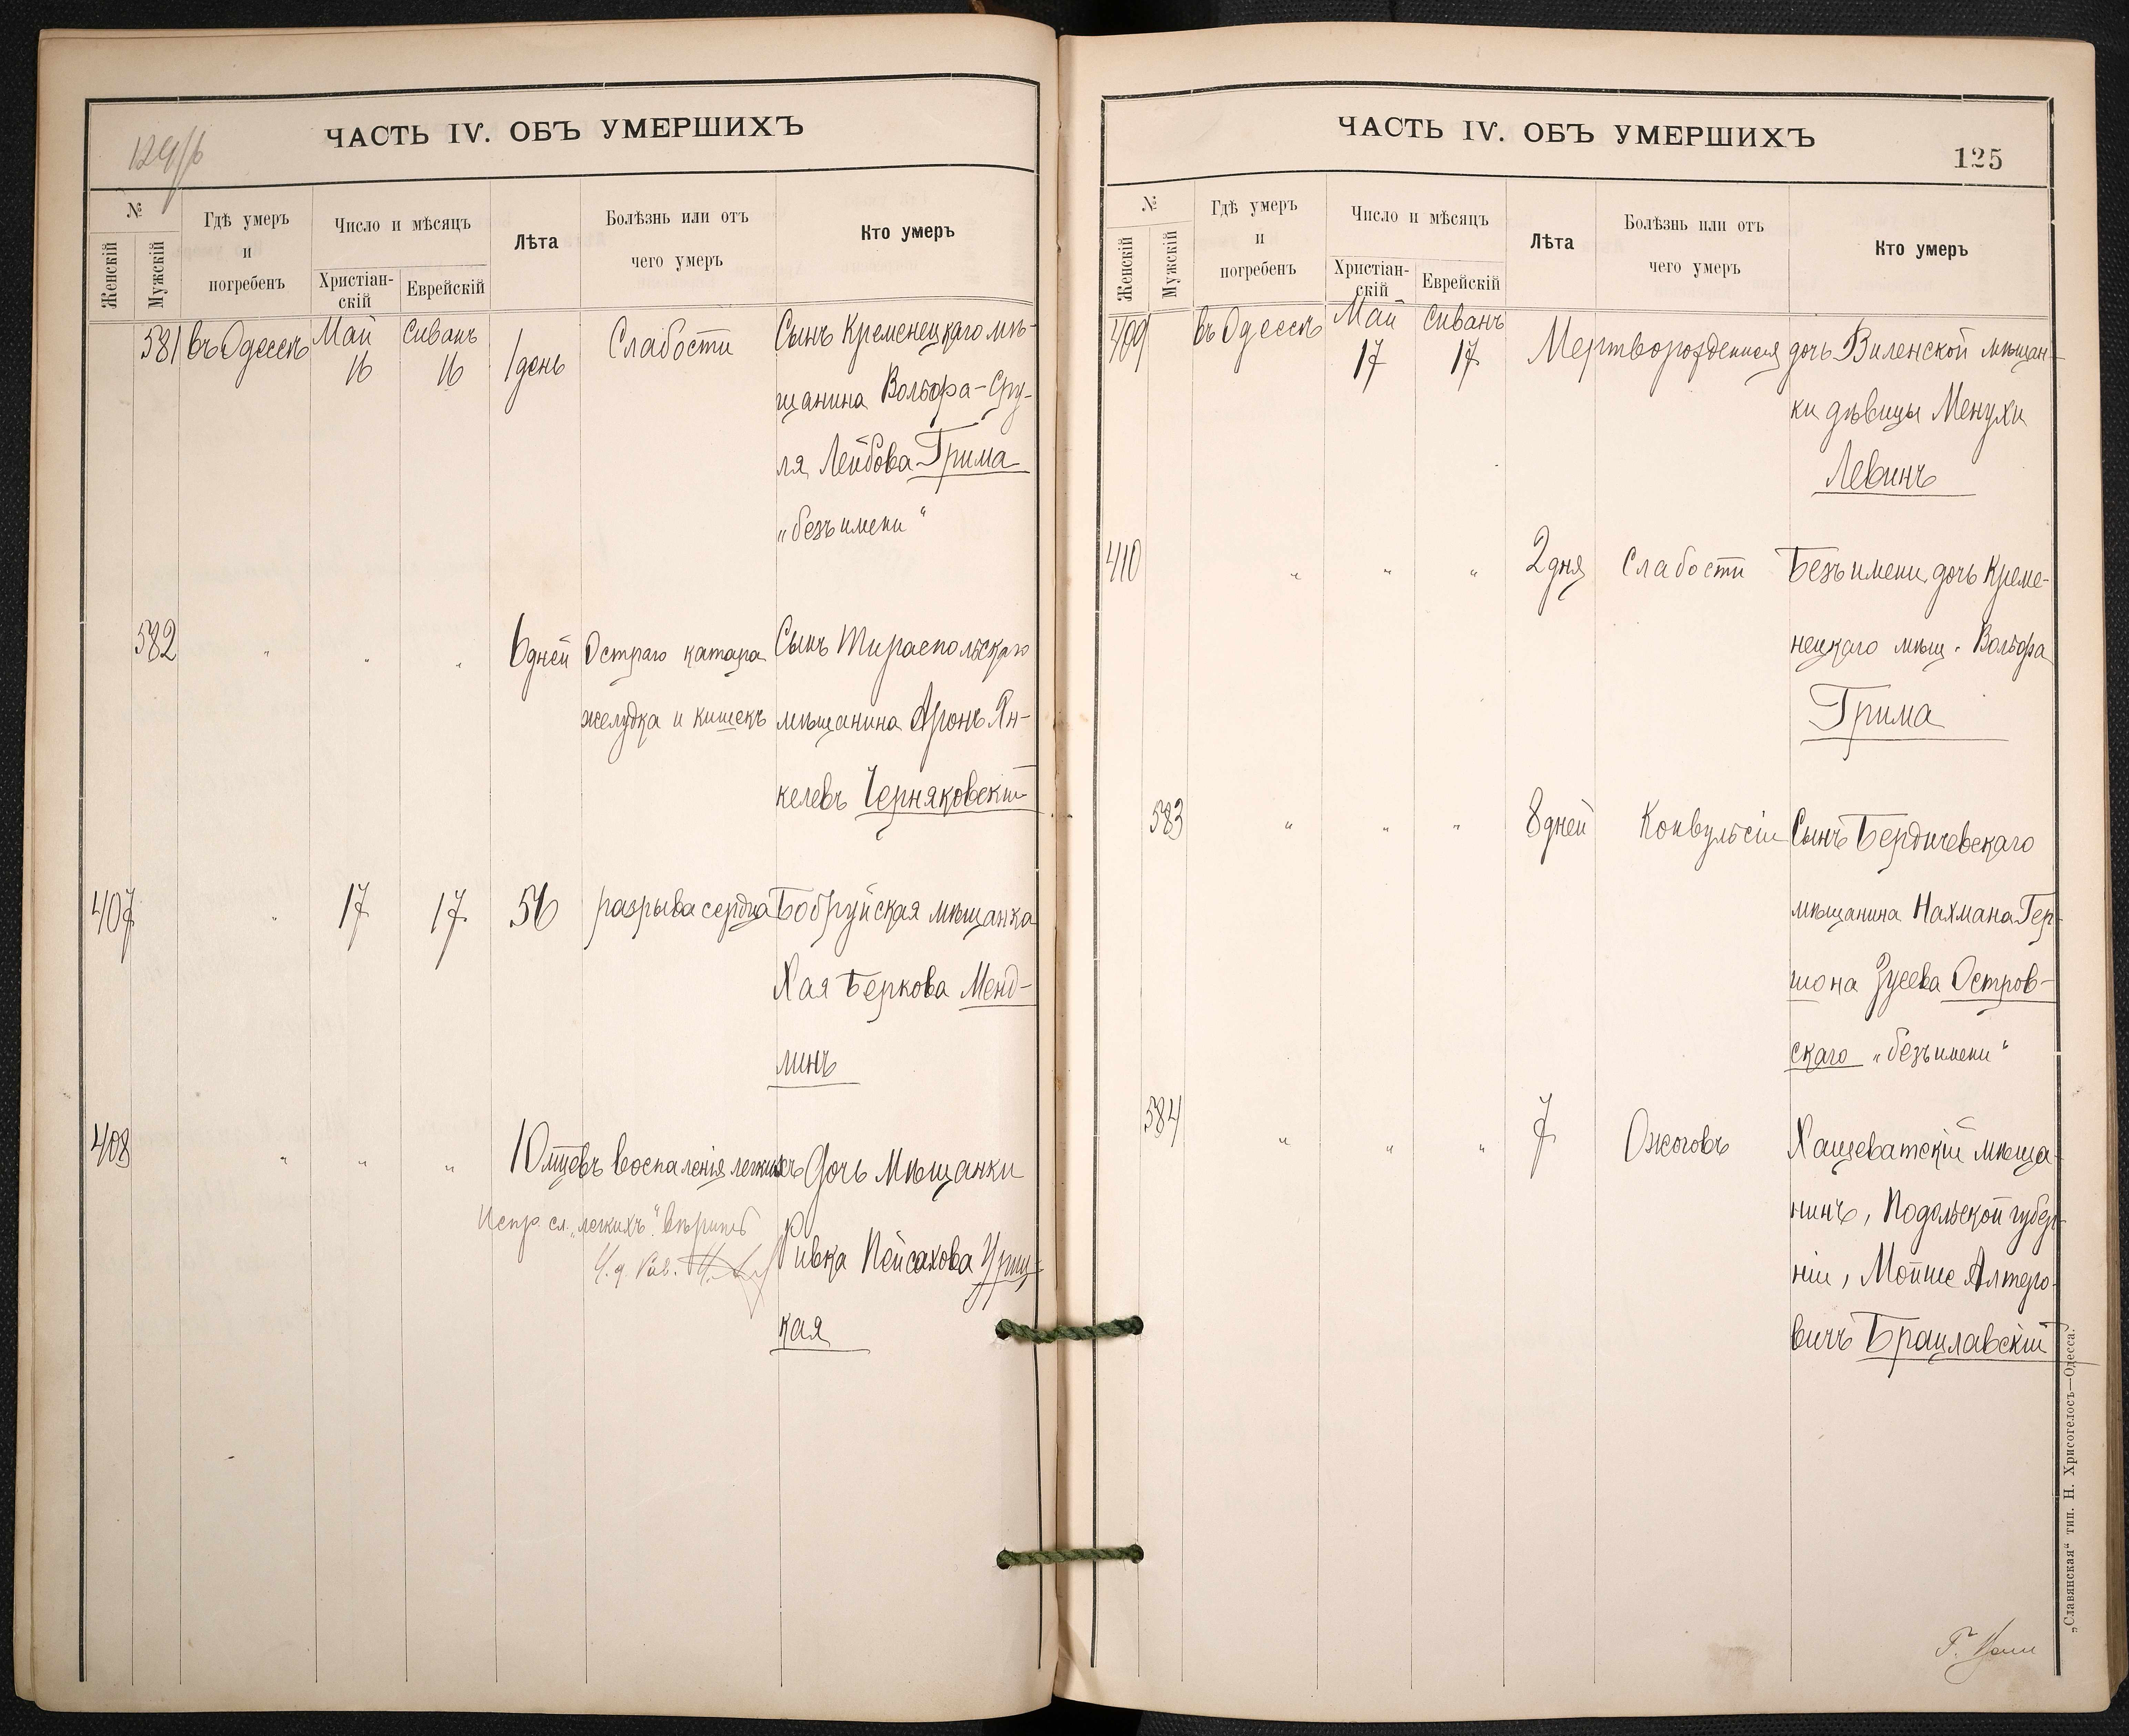 ЧАСТЬ IV. ОБЪ УМЕРШИХЪ
№
Женскій
Мужскій
Гдѣ умеръ
и
погребенъ
Число и мѣсяцъ
Христіан-
скій
Еврейскій
Лѣта
Болѣзнь или отъ
чего умеръ
Кто умеръ
581 въ Одессѣ Май 16 Сиванъ 16 1 день Слабости Сынъ Кременецкаго мѣ-
щанина Вольфа-Сру-
ля Лейбова Грима
„безъ имени“
582 „ „ „ 6 дней Остраго катара Сынъ Тираспольскаго
желудка и кишекъ мѣщанина Аронъ Ян-
келевъ Черняковскій
407 „ 17 17 56 разрыва сердца Бобруйская мѣщанка
Хая Беркова Менд-
линъ
408 „ „ „ 10 мцевъ воспаленія легкихъ Дочь Мѣщанки
Испр. сл. „легкихъ“ вѣрить
Ривка Пейсахова Уриц-
кая
ЧАСТЬ IV. ОБЪ УМЕРШИХЪ
125
№
Женскій
Мужскій
Гдѣ умеръ
и
погребенъ
Число и мѣсяцъ
Христіан-
скій
Еврейскій
Лѣта
Болѣзнь или отъ
чего умеръ
Кто умеръ
409 въ Одессѣ Май 17 Сиванъ 17 Мертворожденная дочь Виленской мѣщан-
ки дѣвицы Менухи
Левинъ
410 „ „ „ 2 дня Слабости Безъ имени, дочь Креме-
нецкаго мѣщ. Вольфа
Грима
583 „ „ „ 8 дней Конвульсіи Сынъ Бердичевскаго
мѣщанина Нахмана Гер-
шона Зусева Остров-
скаго „безъ имени“
584 „ „ „ 7 Ожоговъ Хащеватскій мѣща-
нинъ, Подольской губер-
ніи, Мойше Алтеро-
вичъ Брацлавскій
„Славянская“ тип. Н. Хрисогелосъ—Одесса.